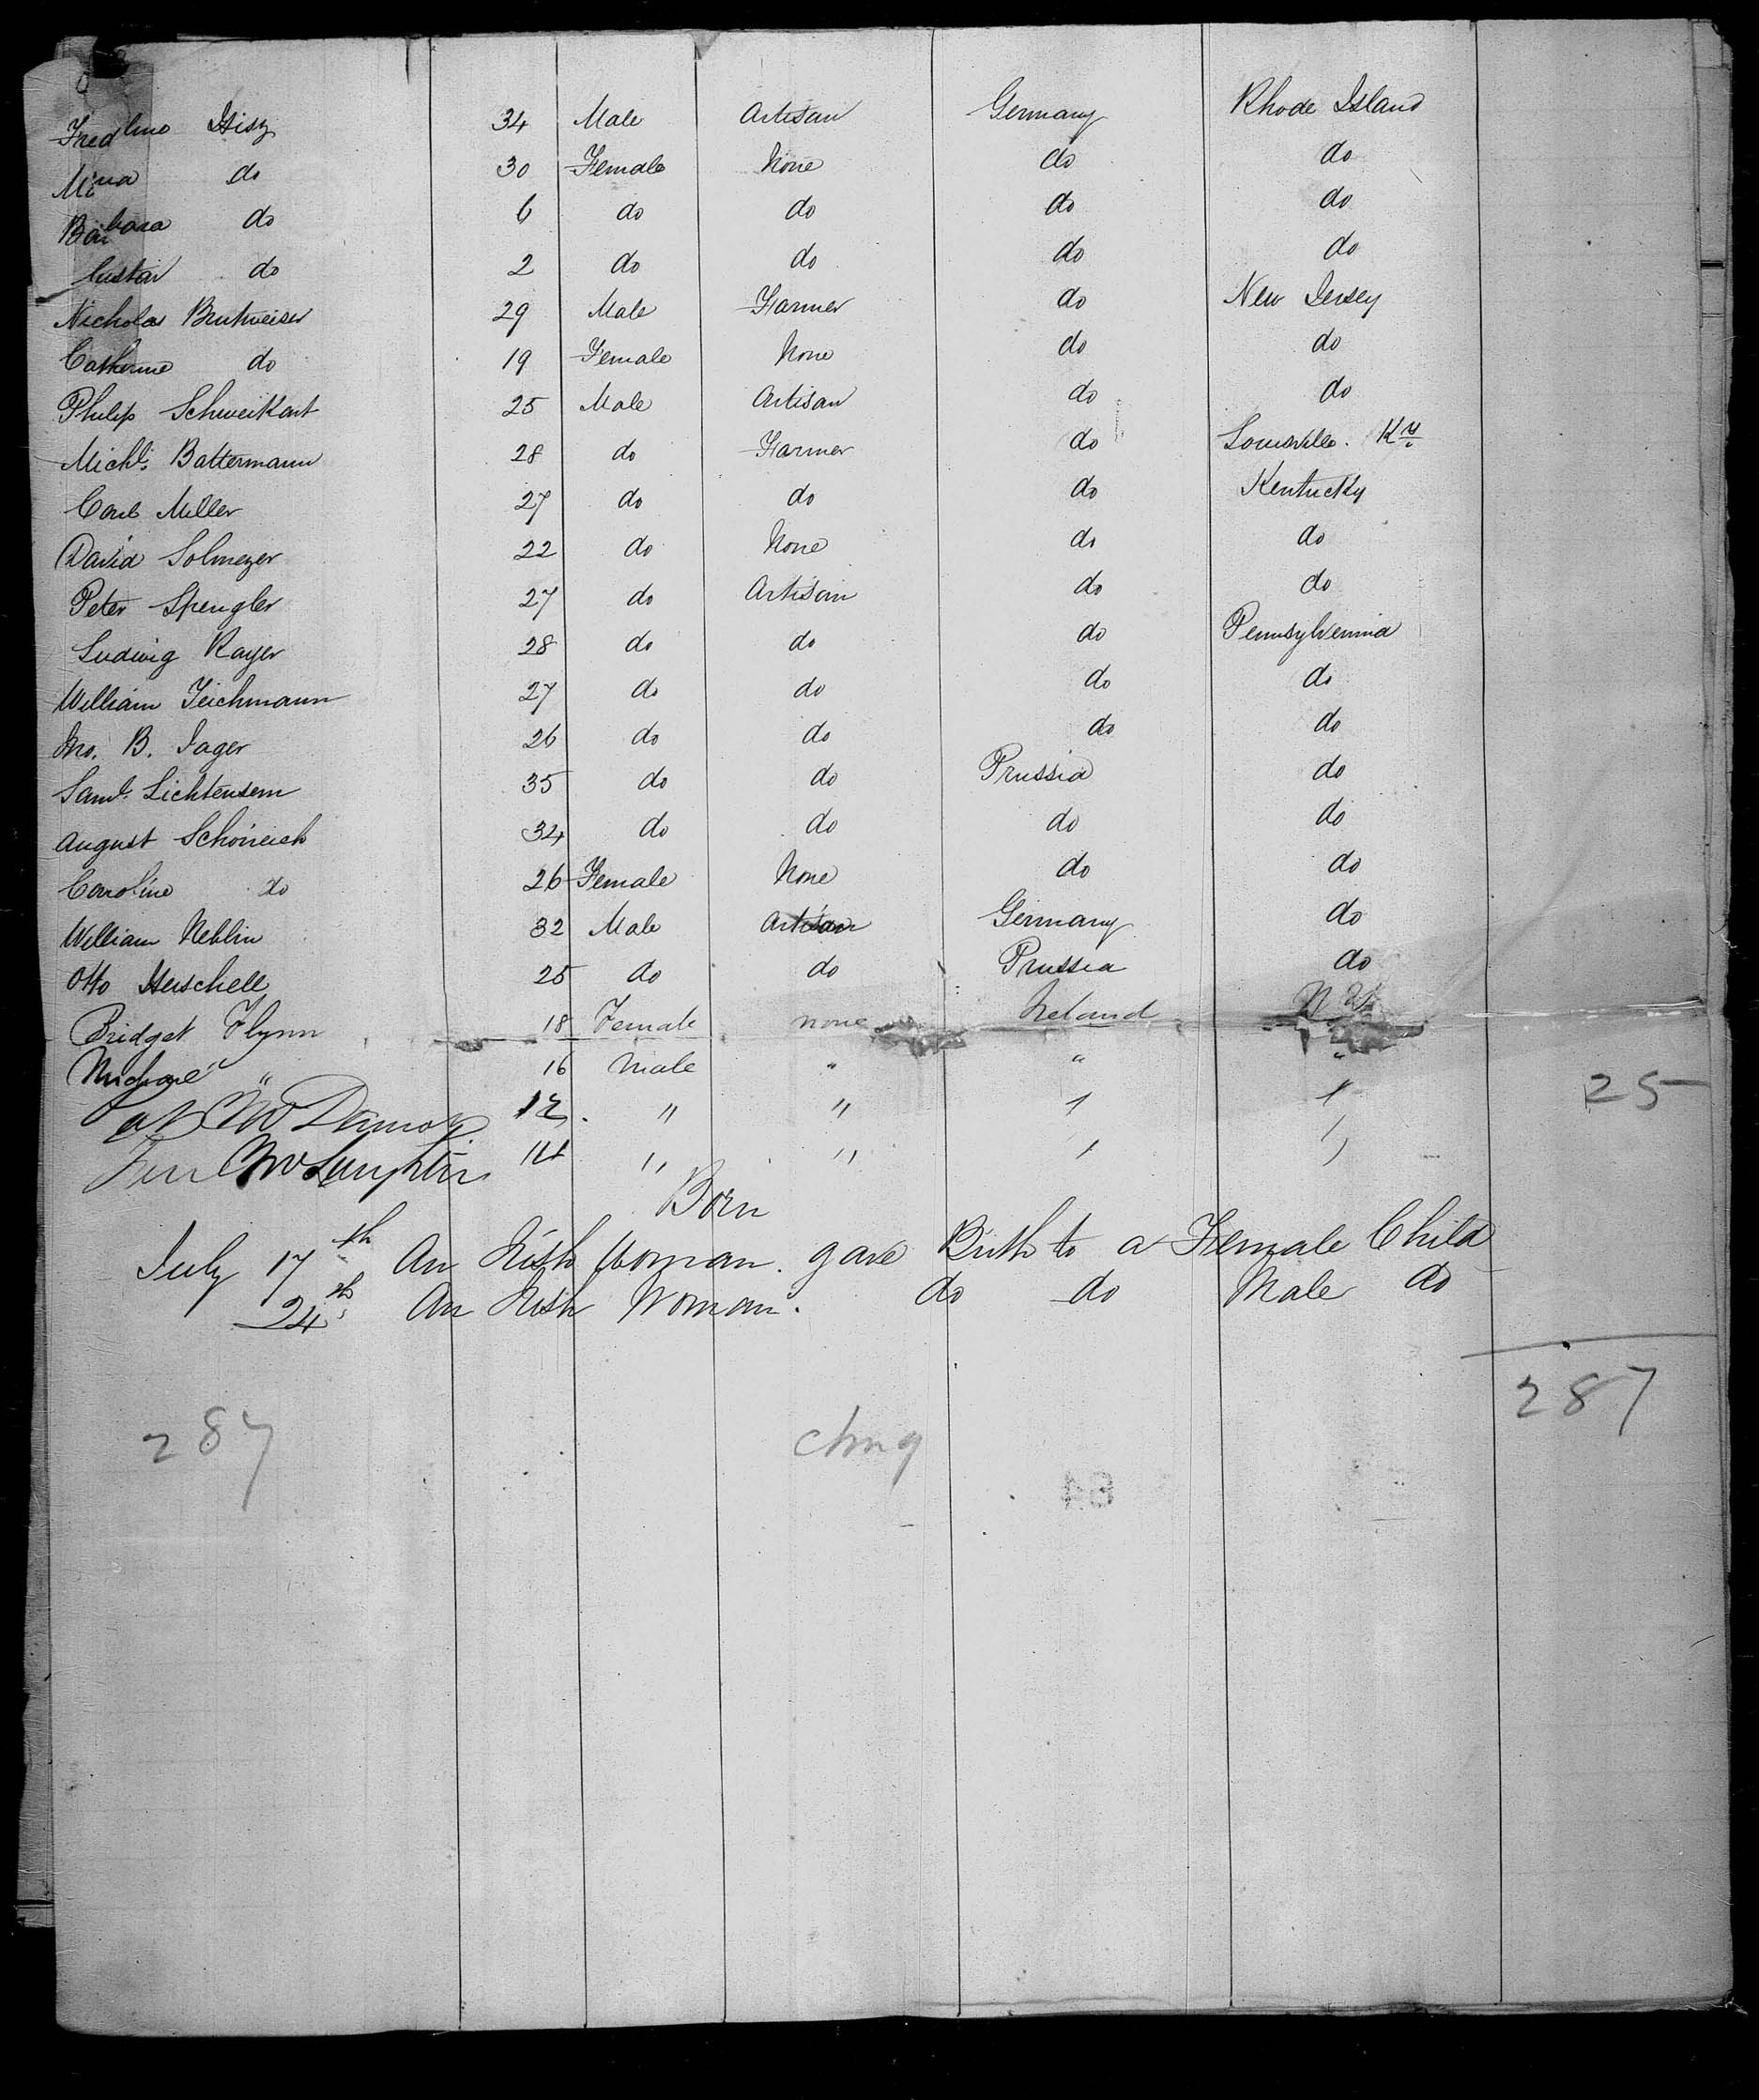 Fredlino Hisz 34 Male Artisan Germany Rhode Island
Mina do 30 Female None do do
Barbara do 6 do do do do
Gustav do 2 do do do do
Nicholas Brutweiser 29 Male Farmer do New Jersey
Catherine do 19 Female None do do
Philip Schweikart 25 Male Artisan do do
Michl. Battermann 28 do Farmer do Louisville. Ky
Carl Miller 27 do do do Kentucky
David Solmeyer 22 do None do do
Peter Spengler 27 do Artisan do do
Ludwig Rayer 28 do do do Pennsylvennia
William Teichmann 27 do do do do
Jno. B. Jager 26 do do do do
Saml. Lichtensern 35 do do Prussia do
August Schöneich 34 do do do do
Caroline do 26 Female None do do
William Neblin 32 Male Artisan Germany do
Otto Herschell 25 do do Prussia do
Bridget Flynn 18 Female none Ireland N Y
Michael " 16 male " " "
Pat 12 " " " "
McLaughlin 14 " " " "
25
Born
July 17th An Irish Woman. gave Birth to a Female Child
24th An Irish Woman. do do Male do
287
287
64